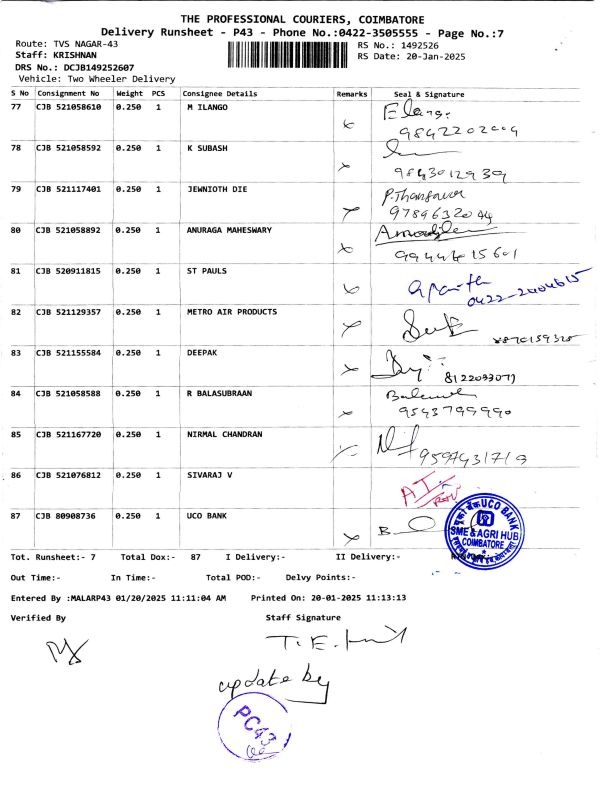 THE PROFESSIONAL COURIERS, COIMBATORE
Delivery Runsheet - P43 - Phone No.:0422-3505555 - Page No.:7
Route: TVS NAGAR-43
RS No.: 1492526
Staff: KRISHNAN
RS Date: 20-Jan-2025
DRS No.: DCJB149252607
Vehicle: Two Wheeler Delivery
S No Consignment No Weight PCS Consignee Details Remarks Seal & Signature
77 CJB 521058610 0.250 1 M ILANGO
9842202009
78 CJB 521058592 0.250 1 K SUBASH
9843012939
79 CJB 521117401 0.250 1 JEWNIOTH DIE
9789632044
80 CJB 521058892 0.250 1 ANURAGA MAHESWARY
9944615601
81 CJB 520911815 0.250 1 ST PAULS
0422-2404615
82 CJB 521129357 0.250 1 METRO AIR PRODUCTS
83 CJB 521155584 0.250 1 DEEPAK
8122033071
84 CJB 521058588 0.250 1 R BALASUBRAAN
9543799990
85 CJB 521167720 0.250 1 NIRMAL CHANDRAN
86 CJB 521076812 0.250 1 SIVARAJ V
87 CJB 80908736 0.250 1 UCO BANK
UCO BANK
SME & AGRI HUB
COIMBATORE
Tot. Runsheet:- 7 Total Dox:- 87 I Delivery:- II Delivery:-
Out Time:- In Time:- Total POD:- Delvy Points:-
Entered By :MALARP43 01/20/2025 11:11:04 AM Printed On: 20-01-2025 11:13:13
Verified By Staff Signature
update by
PC43